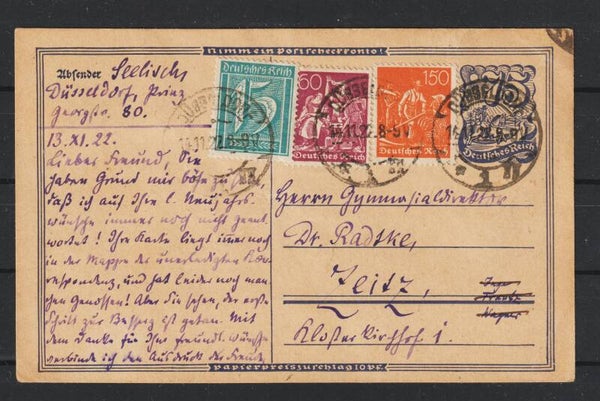 Nimm ein Postscheckkonto!
Absender Seelisch
Düsseldorf, Prinz
Georgstr. 80.
13. XI. 22.
Lieber Freund, Sie
haben Grund mir böse zu sein,
daß ich auf Ihre l. Neujahrs
wünsche immer noch nicht geant
wortet! Ihre Karte liegt immer noch
in der Mappe der unerledigten Kor
respondenz, und hat leider noch man
chen Genossen! Aber Sie sehen, der erste
Schritt zur Besserg ist getan. Mit
dem Danke für Ihre freundl. Wünsche
verbinde ich den Ausdruck der Freude,
Deutsches Reich
45
60
150
Deutsches Reich
75
Deutsches Reich
14.11.22. 8-9V
Herrn Gymnasialdirektor
Dr. Radtke,
Zeitz,
Klosterkirchhof 1.
Papierpreiszuschlag 10 Pf.